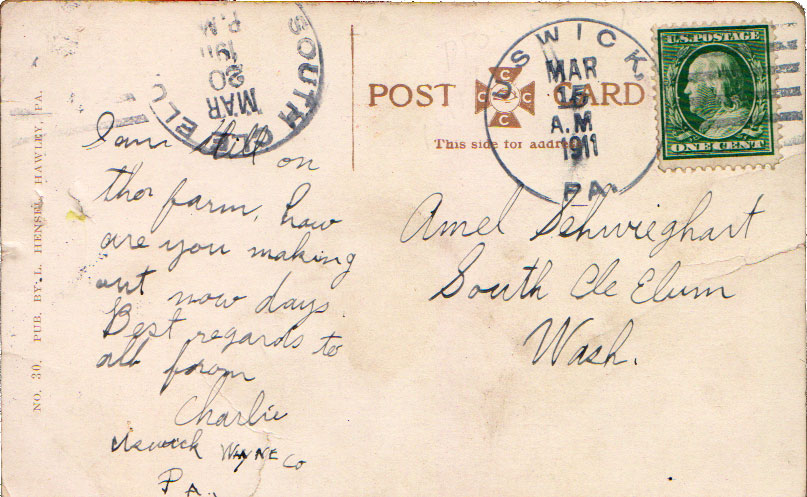 SOUTH CLE ELU
MAR
20
P.M
1911
I am still on
ther farm, how
are you making
out now days
Best regards to
all from
Charlie
Uswick WAYNE CO
PA.
NO. 30. PUB. BY L. HENSEL, HAWLEY, PA.
POST CARD
This side for address
USWICK,
MAR
15
A.M
1911
PA.
U.S. POSTAGE
ONE CENT
Amel Schwieghart
South Cle Elum
Wash.
C C C C